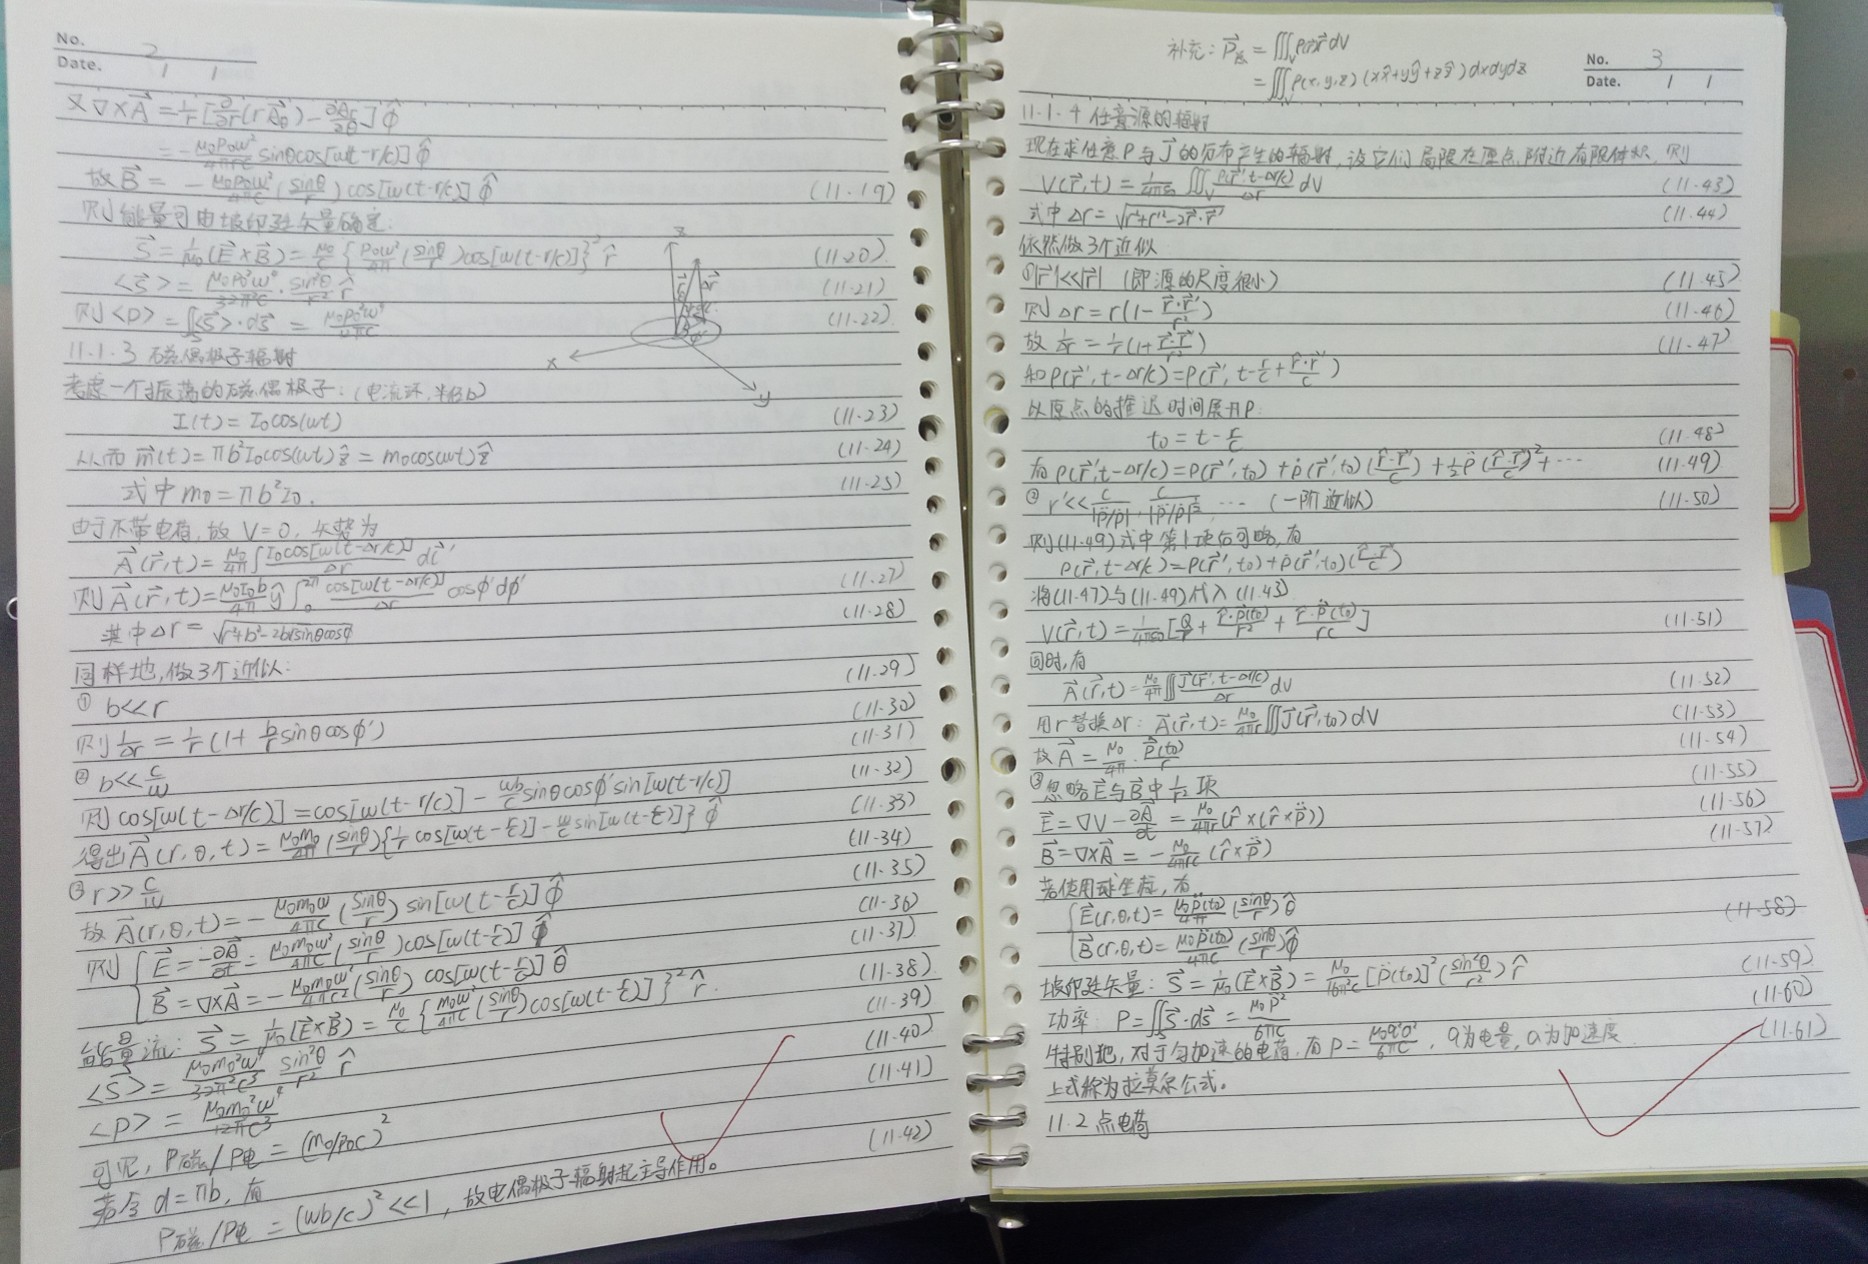 No. 2
Date. 1 1
又∇×A⃗ = 1/r [∂/∂r (rA⃗θ) − ∂Ar/∂θ] φ̂
= −μ₀p₀ω²/4πrc sinθcos[ω(t-r/c)] φ̂
故B⃗ = −μ₀p₀ω²/4πc (sinθ/r) cos[ω(t-r/c)] φ̂ (11.19)
则能量可由坡印廷矢量确定:
S⃗ = 1/μ₀ (E⃗×B⃗) = μ₀/c {p₀ω²/4π (sinθ/r) cos[ω(t-r/c)]}² r̂ (11.20)
<S⃗> = μ₀p₀²ω⁴/32π²c · sin²θ/r² r̂ (11.21)
则<P> = ∬<S⃗>·dS⃗ = μ₀p₀²ω⁴/12πc (11.22)
z
x
y
11.1.3 磁偶极子辐射
考虑一个振荡的磁偶极子: (电流环, 半径b)
I(t) = I₀cos(ωt) (11.23)
从而 m⃗(t) = πb²I₀cos(ωt) ẑ = m₀cos(ωt) ẑ (11.24)
式中 m₀ = πb²I₀. (11.25)
由于不带电荷, 故 V=0, 矢势为
A⃗(r⃗,t) = μ₀/4π ∫ I₀cos[ω(t-Δr/c)]/Δr dl⃗'
则 A⃗(r⃗,t) = μ₀I₀b/4π ŷ ∫₀^2π cos[ω(t-Δr/c)]/Δr cosφ'dφ' (11.27)
其中Δr = √(r²+b²-2brsinθcosφ') (11.28)
同样地, 做3个近似:
① b<<r (11.29)
则 1/Δr = 1/r (1+ b/r sinθcosφ') (11.30)
② b<<c/ω (11.31)
则 cos[ω(t-Δr/c)] = cos[ω(t-r/c)] − ωb/c sinθcosφ'sin[ω(t-r/c)] (11.32)
得出 A⃗(r,θ,t) = μ₀m₀/4π (sinθ/r) {1/r cos[ω(t-r/c)] − ω/c sin[ω(t-r/c)]} φ̂ (11.33)
③ r>>c/ω (11.34)
故 A⃗(r,θ,t) = −μ₀m₀ω/4πc (sinθ/r) sin[ω(t-r/c)] φ̂ (11.35)
则 { E⃗ = −∂A⃗/∂t = μ₀m₀ω²/4πc (sinθ/r) cos[ω(t-r/c)] φ̂ (11.36)
B⃗ = ∇×A⃗ = −μ₀m₀ω²/4πc² (sinθ/r) cos[ω(t-r/c)] θ̂ (11.37)
能量流: S⃗ = 1/μ₀ (E⃗×B⃗) = μ₀/c {m₀ω²/4πc (sinθ/r) cos[ω(t-r/c)]}² r̂. (11.38)
<S⃗> = μ₀m₀²ω⁴/32π²c³ sin²θ/r² r̂ (11.39)
<P> = μ₀m₀²ω⁴/12πc³ (11.40)
可见, P磁/P电 = (m₀/p₀c)² (11.41)
若令 d=πb, 有
P磁/P电 = (ωb/c)² <<1, 故电偶极子辐射起主导作用。 (11.42)
补充: P⃗总 = ∭ᵥ ρ(r⃗)r⃗ dV
= ∭ᵥ ρ(x,y,z) (xx̂+yŷ+zẑ) dxdydz
No. 3
Date. 1 1
11.1.4 任意源的辐射
现在求任意ρ与J⃗的分布产生的辐射, 设它们局限在原点附近有限体积, 则
V(r⃗,t) = 1/4πε₀ ∭ᵥ ρ(r⃗',t-Δr/c)/Δr dV (11.43)
式中 Δr = √(r²+r'²-2r⃗·r⃗') (11.44)
依然做3个近似
①|r⃗'|<<|r⃗| (即源的尺度很小) (11.45)
则 Δr = r(1− r⃗·r⃗'/r²) (11.46)
故 1/Δr = 1/r (1+ r⃗·r⃗'/r²) (11.47)
和 ρ(r⃗',t-Δr/c) = ρ(r⃗', t- r/c + r̂·r⃗'/c)
以原点的推迟时间展开ρ.
t₀ = t- r/c (11.48)
有 ρ(r⃗',t-Δr/c) = ρ(r⃗',t₀) + ρ̇(r⃗',t₀)(r̂·r⃗'/c) + ½ρ̈ (r̂·r⃗'/c)² + ··· (11.49)
② r'<< c/|ρ̈/ρ̇|, c/|ρ⃛/ρ̇|^½, ··· (一阶近似) (11.50)
则(11.49)式中第1项后可略, 有
ρ(r⃗',t-Δr/c) = ρ(r⃗',t₀) + ρ̇(r⃗',t₀)(r̂·r⃗'/c)
将(11.47)与(11.49)代入(11.43)
V(r⃗,t) = 1/4πε₀ [Q/r + r̂·p⃗(t₀)/r² + r̂·p⃗̇(t₀)/rc] (11.51)
同时, 有
A⃗(r⃗,t) = μ₀/4π ∭ J⃗(r⃗',t-Δr/c)/Δr dV (11.52)
用r替换Δr: A⃗(r⃗,t) = μ₀/4πr ∭ J⃗(r⃗',t₀) dV (11.53)
故 A⃗ = μ₀/4π · p⃗̇(t₀)/r (11.54)
③忽略E⃗与B⃗中 1/r² 项 (11.55)
E⃗ = ∇V − ∂A⃗/∂t = μ₀/4πr (r̂×(r̂×p⃗̈)) (11.56)
B⃗ = ∇×A⃗ = − μ₀/4πrc (r̂×p⃗̈) (11.57)
若使用球坐标, 有
{ E⃗(r,θ,t) = μ₀p̈(t₀)/4π (sinθ/r) θ̂
B⃗(r,θ,t) = μ₀p̈(t₀)/4πc (sinθ/r) φ̂ (11.58)
坡印廷矢量: S⃗ = 1/μ₀ (E⃗×B⃗) = μ₀/16π²c [p̈(t₀)]² (sin²θ/r²) r̂ (11.59)
功率: P = ∬S⃗·dS⃗ = μ₀p̈²/6πc (11.60)
特别地, 对于匀加速的电荷, 有 P = μ₀q²a²/6πc, q为电量, a为加速度 (11.61)
上式称为拉莫尔公式。
11.2 点电荷